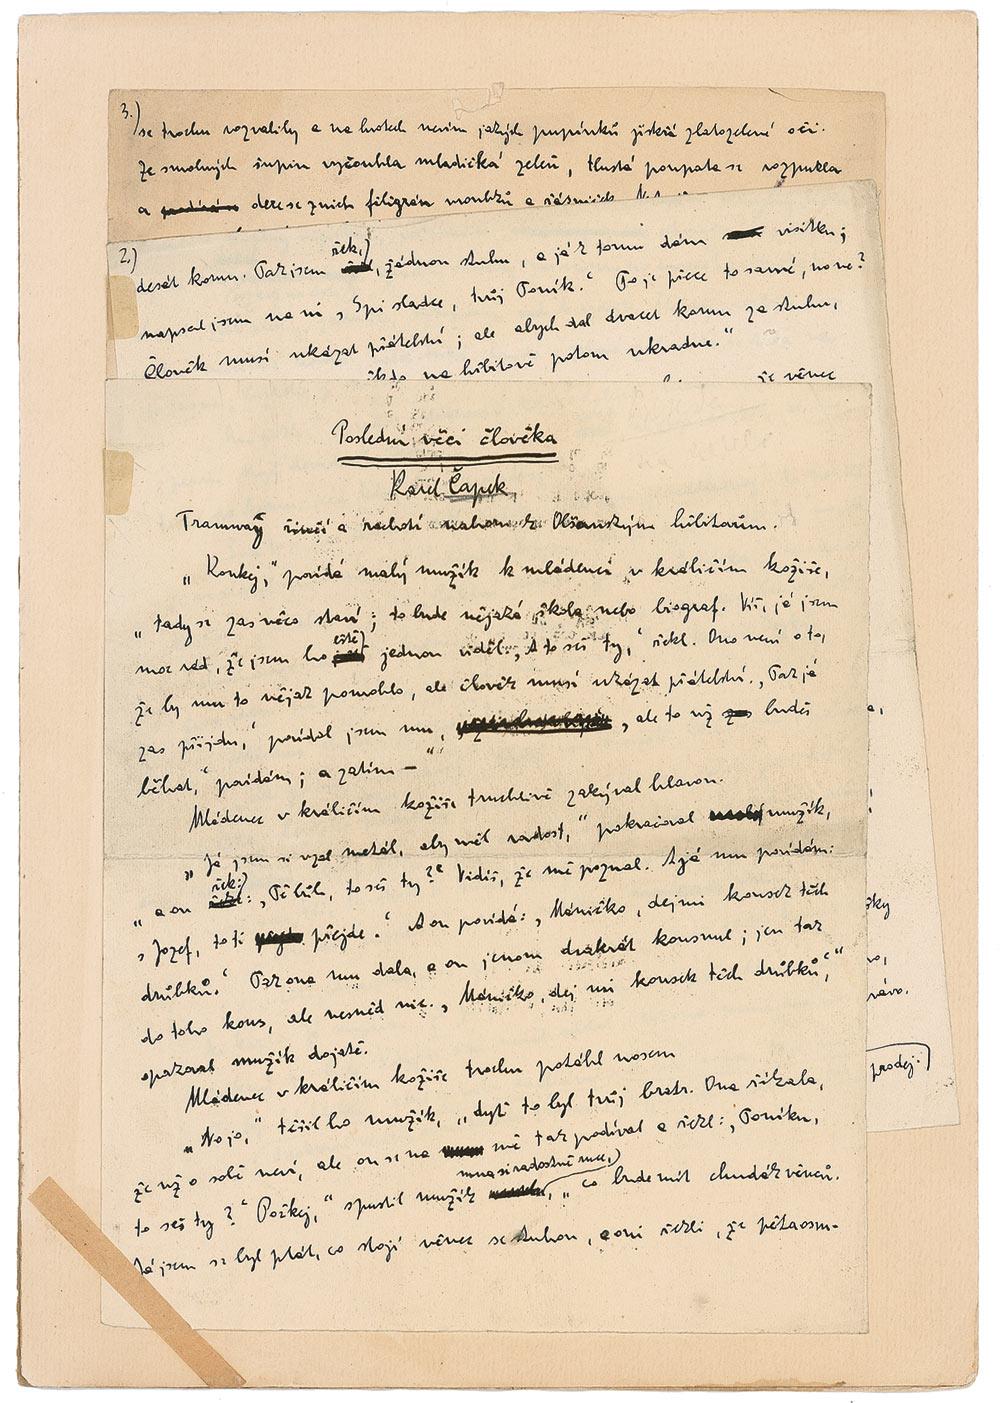 3.)
se trochu rozvalily a na hrotech nevím jakých pupínků jiskří zlatozelené oči.
Ze smolných šupin vyčouhla mladičká zeleň, tlustá poupata se rozpukla
a deresezních filigrán
2.)
deset korun. Tak jsem řek,) žádnou stuhu, a já k tomu dám visitku;
napsal jsem na ni ‚Spi sladce, tvůj Toník.‘ To je přece to samé, no ne?
Člověk musí ukázat přátelství; ale abych dal dvacet korun za stuhu,
na hřbitově potom ukradne.“
věnec
Poslední věci člověka
Karel Čapek
Tramway a rachotí nahoru k Olšanským hřbitovům.
„Koukej,“ povídá malý mužík k mládenci v králičím kožiše,
„tady se zas něco staví; to bude nějaká škola nebo biograf. Víš, já jsem
moc rád, že jsem ho eště) jednou viděl. ‚A to seš ty,‘ řekl. Ono není o to,
že by mu to nějak pomohlo, ale člověk musí ukázat přátelství. ‚Tak já
zas přijdu,‘ povídal jsem mu, ‚ale to už budeš
běhat,‘ povídám; a zatím —“
Mládenec v králičím kožiše truchlivě zakýval hlavou.
„Já jsem si vzal metál, aby měl radost,“ pokračoval mužík,
„a on řek:) ‚Těbuh, to seš ty?‘ Vidíš, že mě poznal. A já mu povídám:
‚Jozef, to ti přejde.‘ A on povídá: ‚Máničko, dej mi kousek těch
drůbků.‘ Tak ona mu dala, a on jenom dvakrát kousnul; jen tak
do toho kous, ale nesněd nic. ‚Máničko, dej mi kousek těch drůbků,‘“
opakoval mužík dojatě.
Mládenec v králičím kožiše trochu potáhl nosem
„No jo,“ těšil ho mužík, „dyť to byl tvůj bratr. Ona říkala,
že už o sobě neví, ale on se na mě tak podíval a řekl: ‚Toníku,
to seš ty?‘ Počkej,“ spustil mužík mnasi radostně nuce,) „co bude mít chudák věnců.
Já jsem se byl ptát, co stojí věnec se stuhou, a oni řekli, že pětaosm-
zky
no,
rávo.
prodej.